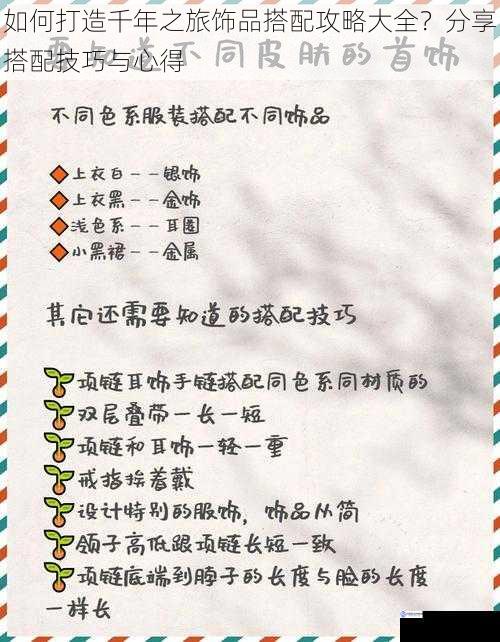 如何打造千年之旅饰品搭配攻略大全？分享
搭配技巧与心得
要知道不同皮肤的首饰
不同色系服装搭配不同饰品
上衣白——银饰
上衣黑——金饰
浅色系——耳圈
小黑裙——金属
其它还需要知道的搭配技巧
项链耳饰手链搭配同色系同材质的
双层叠带一长一短
项链和耳饰一轻一重
戒指挨着戴
设计特别的服饰，饰品从简
领子高低跟项链长短一致
项链底端到脖子的长度与脸的长度
一样长